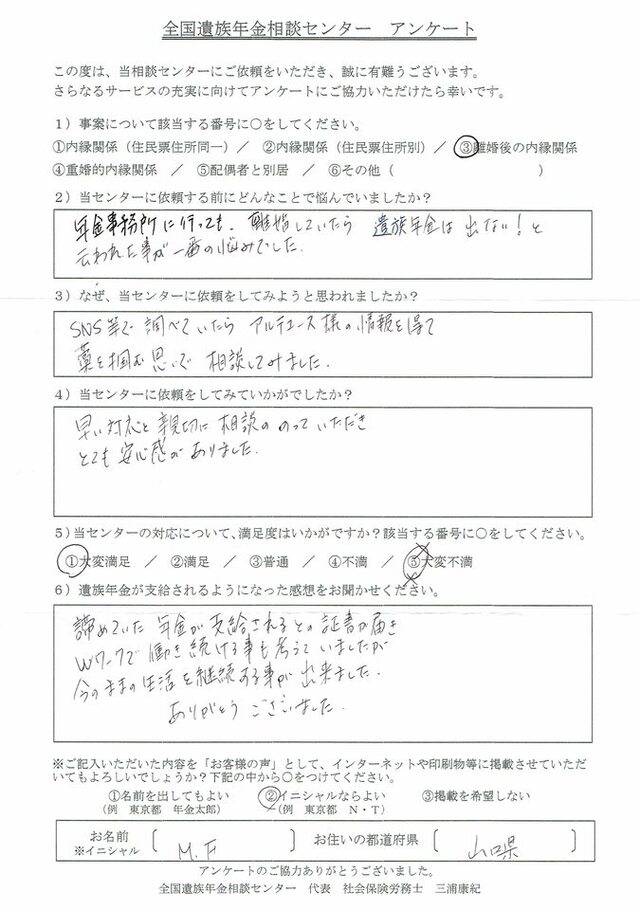 全国遺族年金相談センター　アンケート
この度は、当相談センターにご依頼をいただき、誠に有難うございます。
さらなるサービスの充実に向けてアンケートにご協力いただけたら幸いです。
1）事案について該当する番号に○をしてください。
①内縁関係（住民票住所同一）／　②内縁関係（住民票住所別）／　③離婚後の内縁関係
④重婚的内縁関係　／　⑤配偶者と別居　／　⑥その他（　　　　　　　　　　）
2）当センターに依頼する前にどんなことで悩んでいましたか？
年金事務所に行っても、離婚していたら　遺族年金は出ない！と
云われた事が一番の悩みでした.
3）なぜ、当センターに依頼をしてみようと思われましたか？
SNS等で調べていたら　アルテユース様の情報を得て
藁を掴む思いで　相談してみました.
4）当センターに依頼をしてみていかがでしたか？
早い対応と親切に相談ののっていただき
とても安心感がありました.
5）当センターの対応について、満足度はいかがですか？該当する番号に○をしてください。
①大変満足　／　②満足　／　③普通　／　④不満　／　⑤大変不満
6）遺族年金が支給されるようになった感想をお聞かせください。
諦めていた　年金が支給されるとの証書が届き
Wワークで働き続ける事も考えていましたが
今のままの生活を継続する事が出来ました.
ありがとうございました.
※ご記入いただいた内容を「お客様の声」として、インターネットや印刷物等に掲載させていただ
いてもよろしいでしょうか？下記の中から○をつけてください。
①名前を出してもよい　②イニシャルならよい　③掲載を希望しない
（例　東京都　年金太郎）　（例　東京都　N・T）
お名前　M.F　お住いの都道府県　山口県
※イニシャル
アンケートのご協力ありがとうございました。
全国遺族年金相談センター　代表　社会保険労務士　三浦康紀